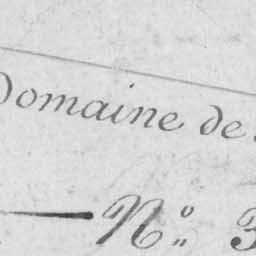 Domaine de
— N.º 3